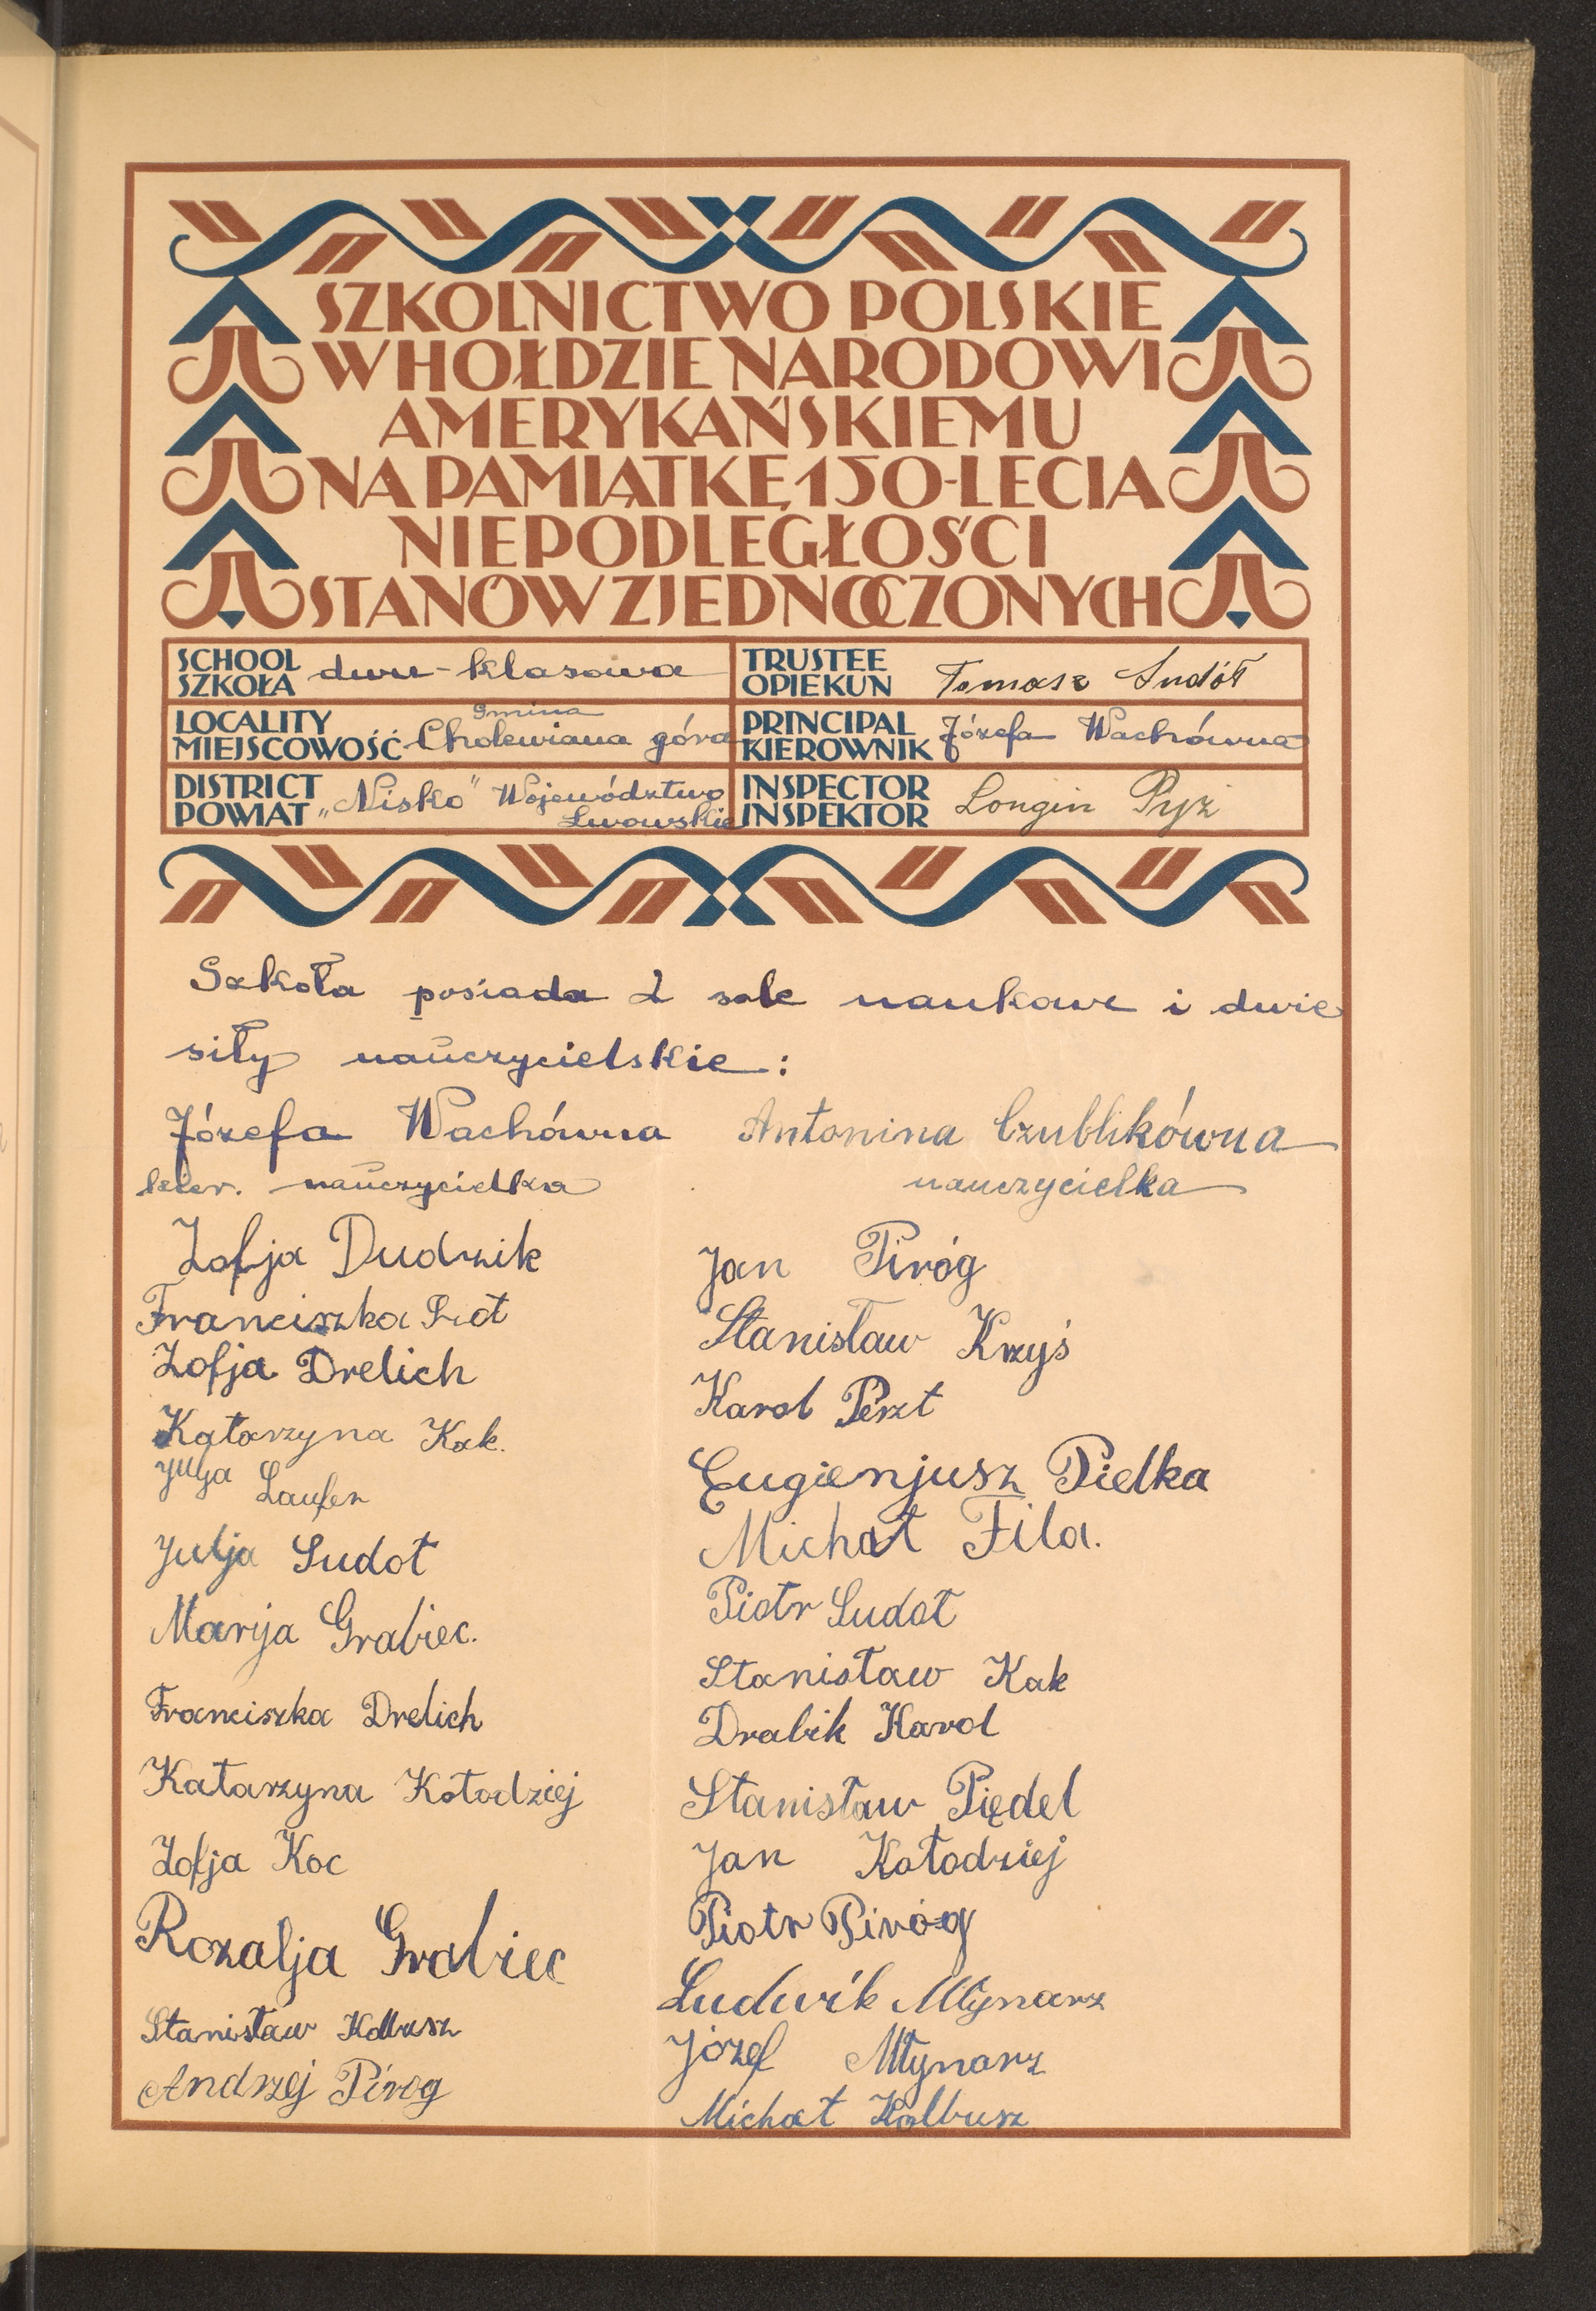 SZKOLNICTWO POLSKIE
W HOŁDZIE NARODOWI
AMERYKAŃSKIEMU
NA PAMIĄTKĘ 150-LECIA
NIEPODLEGŁOŚCI
STANÓW ZJEDNOCZONYCH
SCHOOL
SZKOŁA dwu-klasowa
TRUSTEE
OPIEKUN Tomasz Sudół
LOCALITY
MIEJSCOWOŚĆ gmina Cholewiana góra
PRINCIPAL
KIEROWNIK Józefa Wachówna
DISTRICT
POWIAT „Nisko" Województwo
Lwowskie
INSPECTOR
INSPEKTOR Longin Pyż
Szkoła posiada 2 sale naukowe i dwie
siły nauczycielskie:
Józefa Wachówna
kier. nauczycielka
Antonina Czublikówna
nauczycielka
Zofja Dudzik
Franciszka
Zofja Drelich
Katarzyna Kak.
Julja Laufer
Julja Sudoł
Marija Grabiec.
Franciszka Drelich
Katarzyna Kołodziej
Zofja Koc
Rozalja Grabiec
Stanisław Kolbusz
Andrzej Piróg
Jan Piróg
Stanisław Krzyś
Karol Perzt
Eugienjusz Pielka
Michał Fila.
Piotr Sudoł
Stanisław Kak
Drabik Karol
Stanisław Piędel
Jan Kołodziej
Piotr Piróg
Ludwik Młynarz
Józef Młynarz
Michał Kolbusz